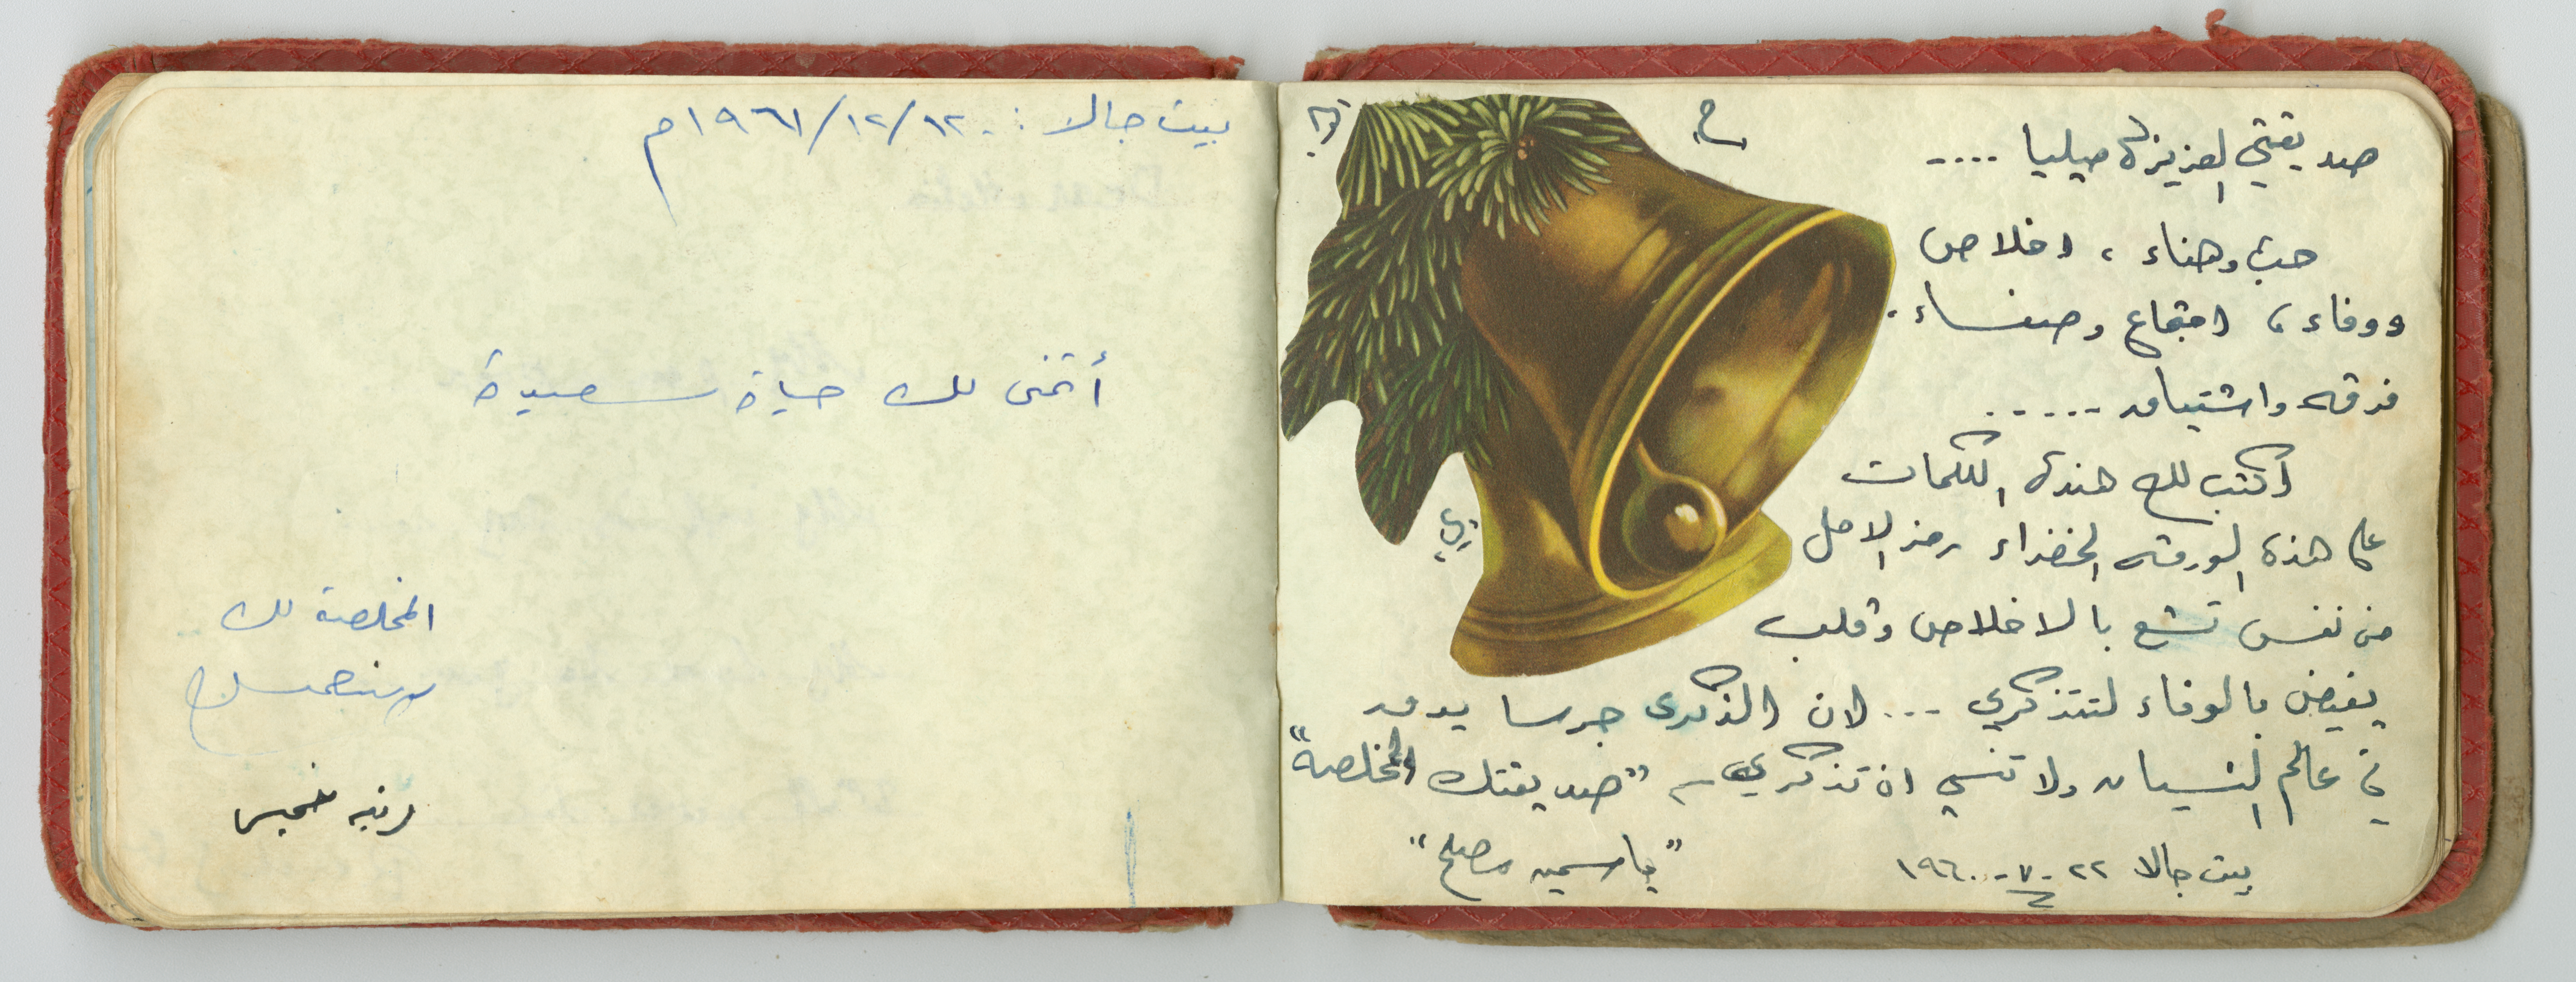 صديقتي العزيزة ميليا ....
حب وهناء ، اخلاص
ووفاء ، اجتماع وصفاء .
فرقه واشتياق .....
أكتب لك هذه الكلمات
على هذه الورقه الخضراء رمز الامل
من نفس تشع بالاخلاص وقلب
يفيض بالوفاء لتتذكري ... لان الذكرى جرسا يدق
في عالم النسيان ولا تنسي ان تذكري "صديقتك المخلصه"
"ياسمين مصلح"
بيت جالا ٢٢-٧-١٩٦٠
بيت جالا : ١٢/١٢/١٩٦١م
أتمنى لك حياة سعيدة
المخلصة لك
خميس